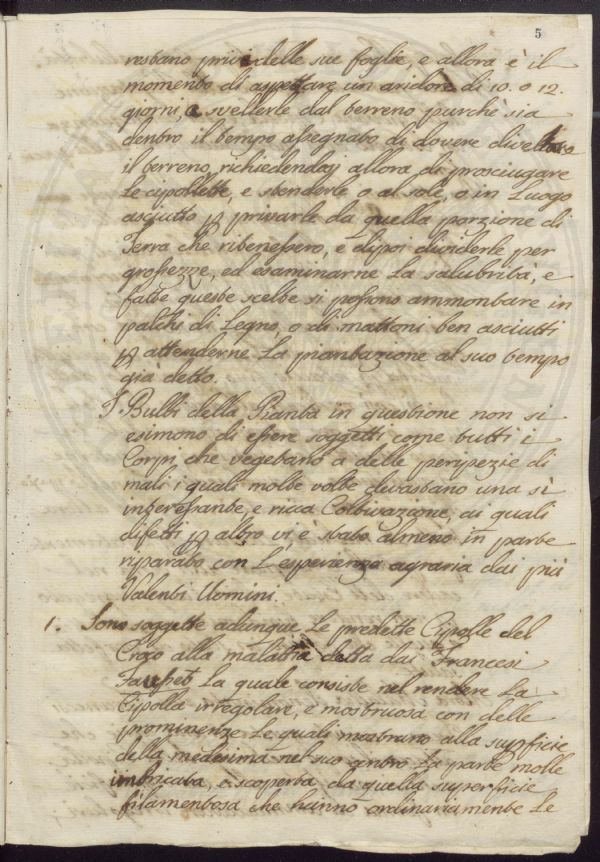 5
restano privi delle sue foglie, e allora è il
momento di aspettare un aridore di 10. o 12.
giorni, e svellerle dal terreno purchè sia
dentro il tempo assegnato di dovere divellare
il terreno, richiedendosi allora di prosciugare
Le cipollette, e stenderle o al sole, o in Luogo
asciutto p privarle da quella porzione di
Terra che ritenessero, e dipoi dividerle per
grossezze, ed esaminarne La salubrità, e
fatte queste scelte si possono ammontare in
palchi di Legno, o di mattoni ben asciutti
p attenderne La piantazione al suo tempo
già detto.
I Bulbi della Pianta in questione non si
esimono di essere soggetti come tutti i
Corpi che vegetano a delle peripezie di
mali i quali molte volte devastano una sì
interessante, e ricca Coltivazione, ai quali
difetti p altro vi è stato almeno in parte
riparato con L'esperienza agraria dai più
Valenti Uomini.
1. Sono soggette adunque Le predette Cipolle del
Croco alla malattia detta dai Francesi
Fauset La quale consiste nel rendere La
Cipolla irregolare, e mostruosa con delle
prominenze Le quali mostrano alla supficie
della medesima nel suo centro La parte molle
imbricata, e scoperta da quella superficie
filamentosa che hanno ordinariamente Le